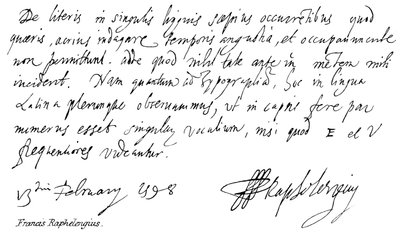 De literis in singulis linguis sæpius occurrētibus quod
quæris, acrius indagare temporis angustia, et occupatiunculæ
non permittunt. adde quod nihil tale ante in mētem mihi
incident. Nam quantum ad typographiā, hoc in lingua
Latina plerumque observavimus, ut in captis fere par
numerus esset singularū vocalium, nisi quod E et V
frequentiores videantur.
Februarij 1598
Raphelengius
Francis Raphelengius.